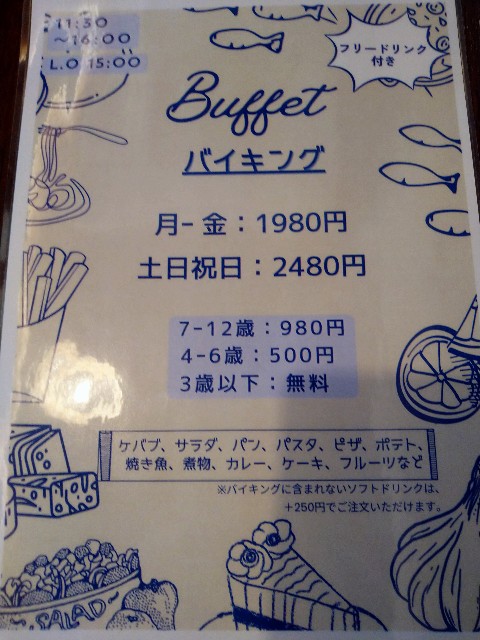 11:30
～16:00
L.O 15:00
フリードリンク
付き
Buffet
バイキング
月-金：1980円
土日祝日：2480円
7-12歳：980円
4-6歳：500円
3歳以下：無料
ケバブ、サラダ、パン、パスタ、ピザ、ポテト、
焼き魚、煮物、カレー、ケーキ、フルーツなど
※バイキングに含まれないソフトドリンクは、
+250円でご注文いただけます。
SALAD